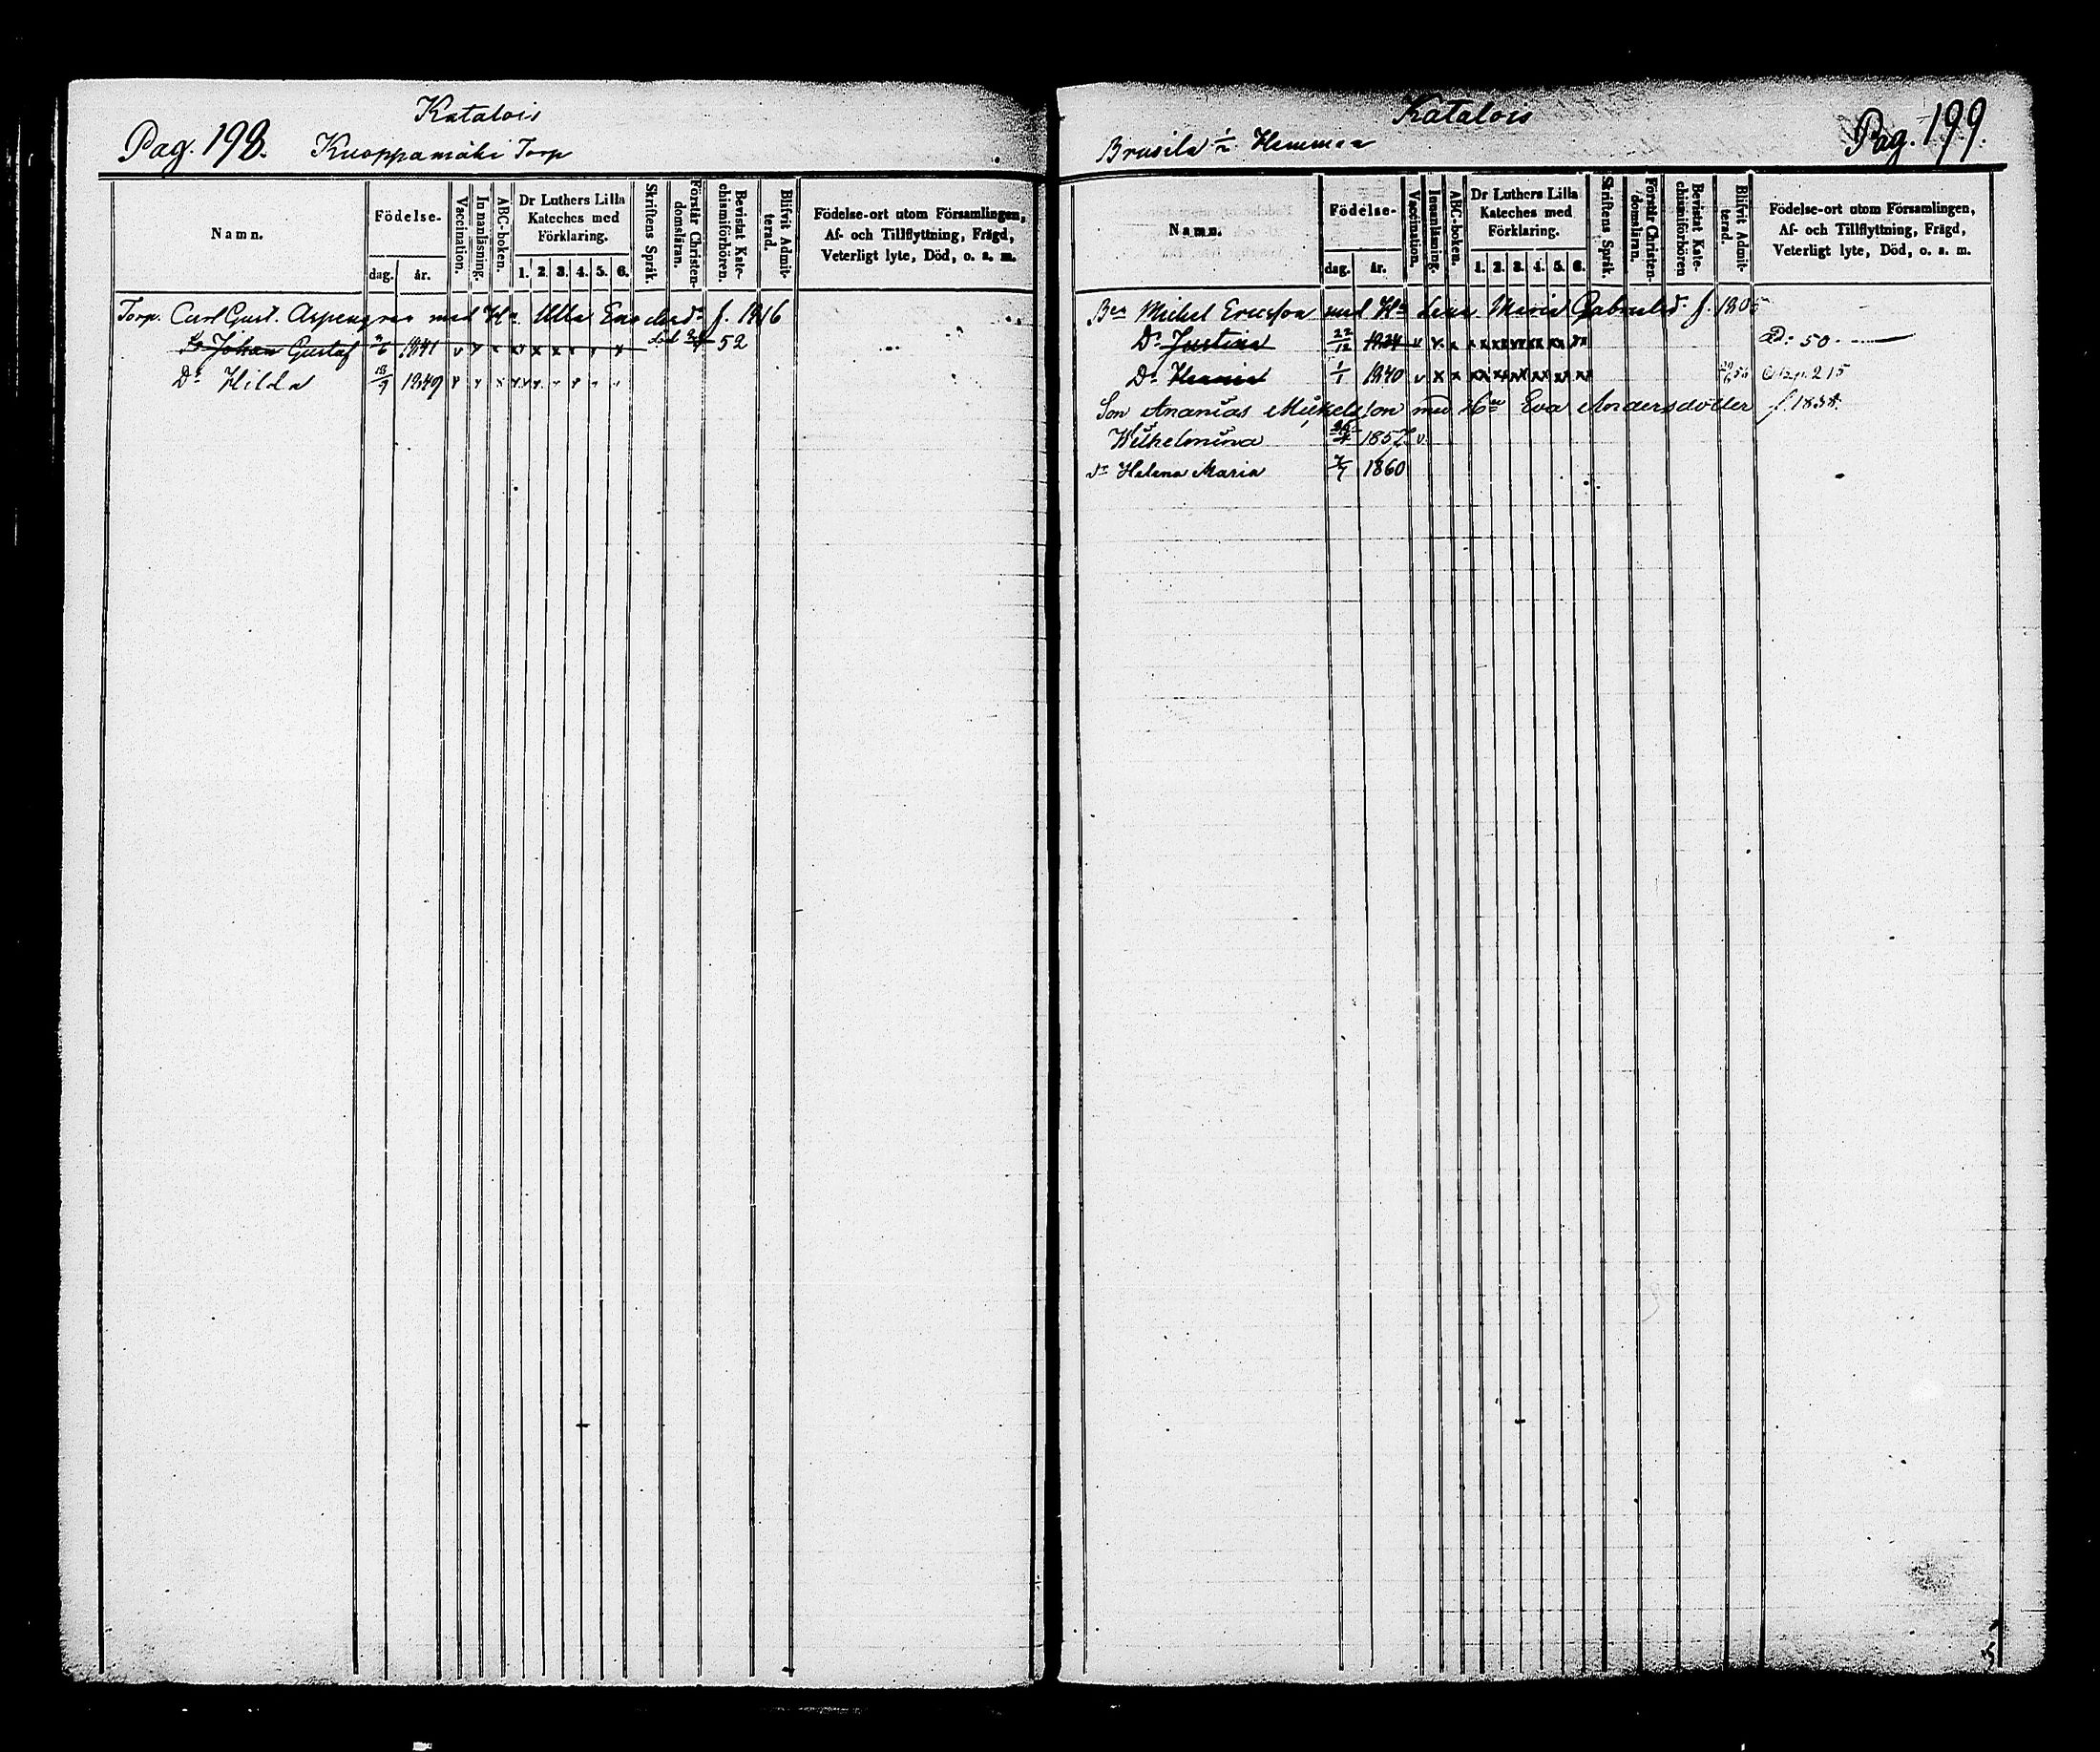 Katalois
Pag. 198. Kuoppamäki Torp
Namn.
Födelse-
dag. år.
Vaccination.
Innanläsning.
ABC-boken.
Dr Luthers Lilla Kateches med Förklaring.
1. 2. 3. 4. 5. 6.
Skriftens Språk.
Förstår Christen-domsläran.
Bevistat Kate-chismiförhören.
Blifvit Admit-terad.
Födelse-ort utom Församlingen,
Af- och Tillflyttning, Frägd,
Veterligt lyte, Död, o. s. m.
Torp. Carl Gust. Aspengren med Hu Ulla f. 1816
Johan Gustaf 1841 v död 52
Dr Hilda 18/9 1849
Katalois
Brusila ½ Hemman Pag. 199.
Namn.
Födelse-
dag. år.
Vaccination.
Innanläsning.
ABC-boken.
Dr Luthers Lilla Kateches med Förklaring.
1. 2. 3. 4. 5. 6.
Skriftens Språk.
Förstår Christen-domsläran.
Bevistat Kate-chismiförhören
Blifvit Admit-terad.
Födelse-ort utom Församlingen,
Af- och Tillflyttning, Frägd,
Veterligt lyte, Död, o. s. m.
Michel Ericsson med Hu Maria Gabrielsd. f.
Dr Justina 22/12 1834 v x x x xx xx xx xx xx xx 50
Dr 1/1 1840 v x x xx xx xx xx xx xx 215
Son Ananias Mickelsson med Hu Eva Andersdotter f. 1838.
Wilhelmina 1857 v.
dr Helena Maria 1860